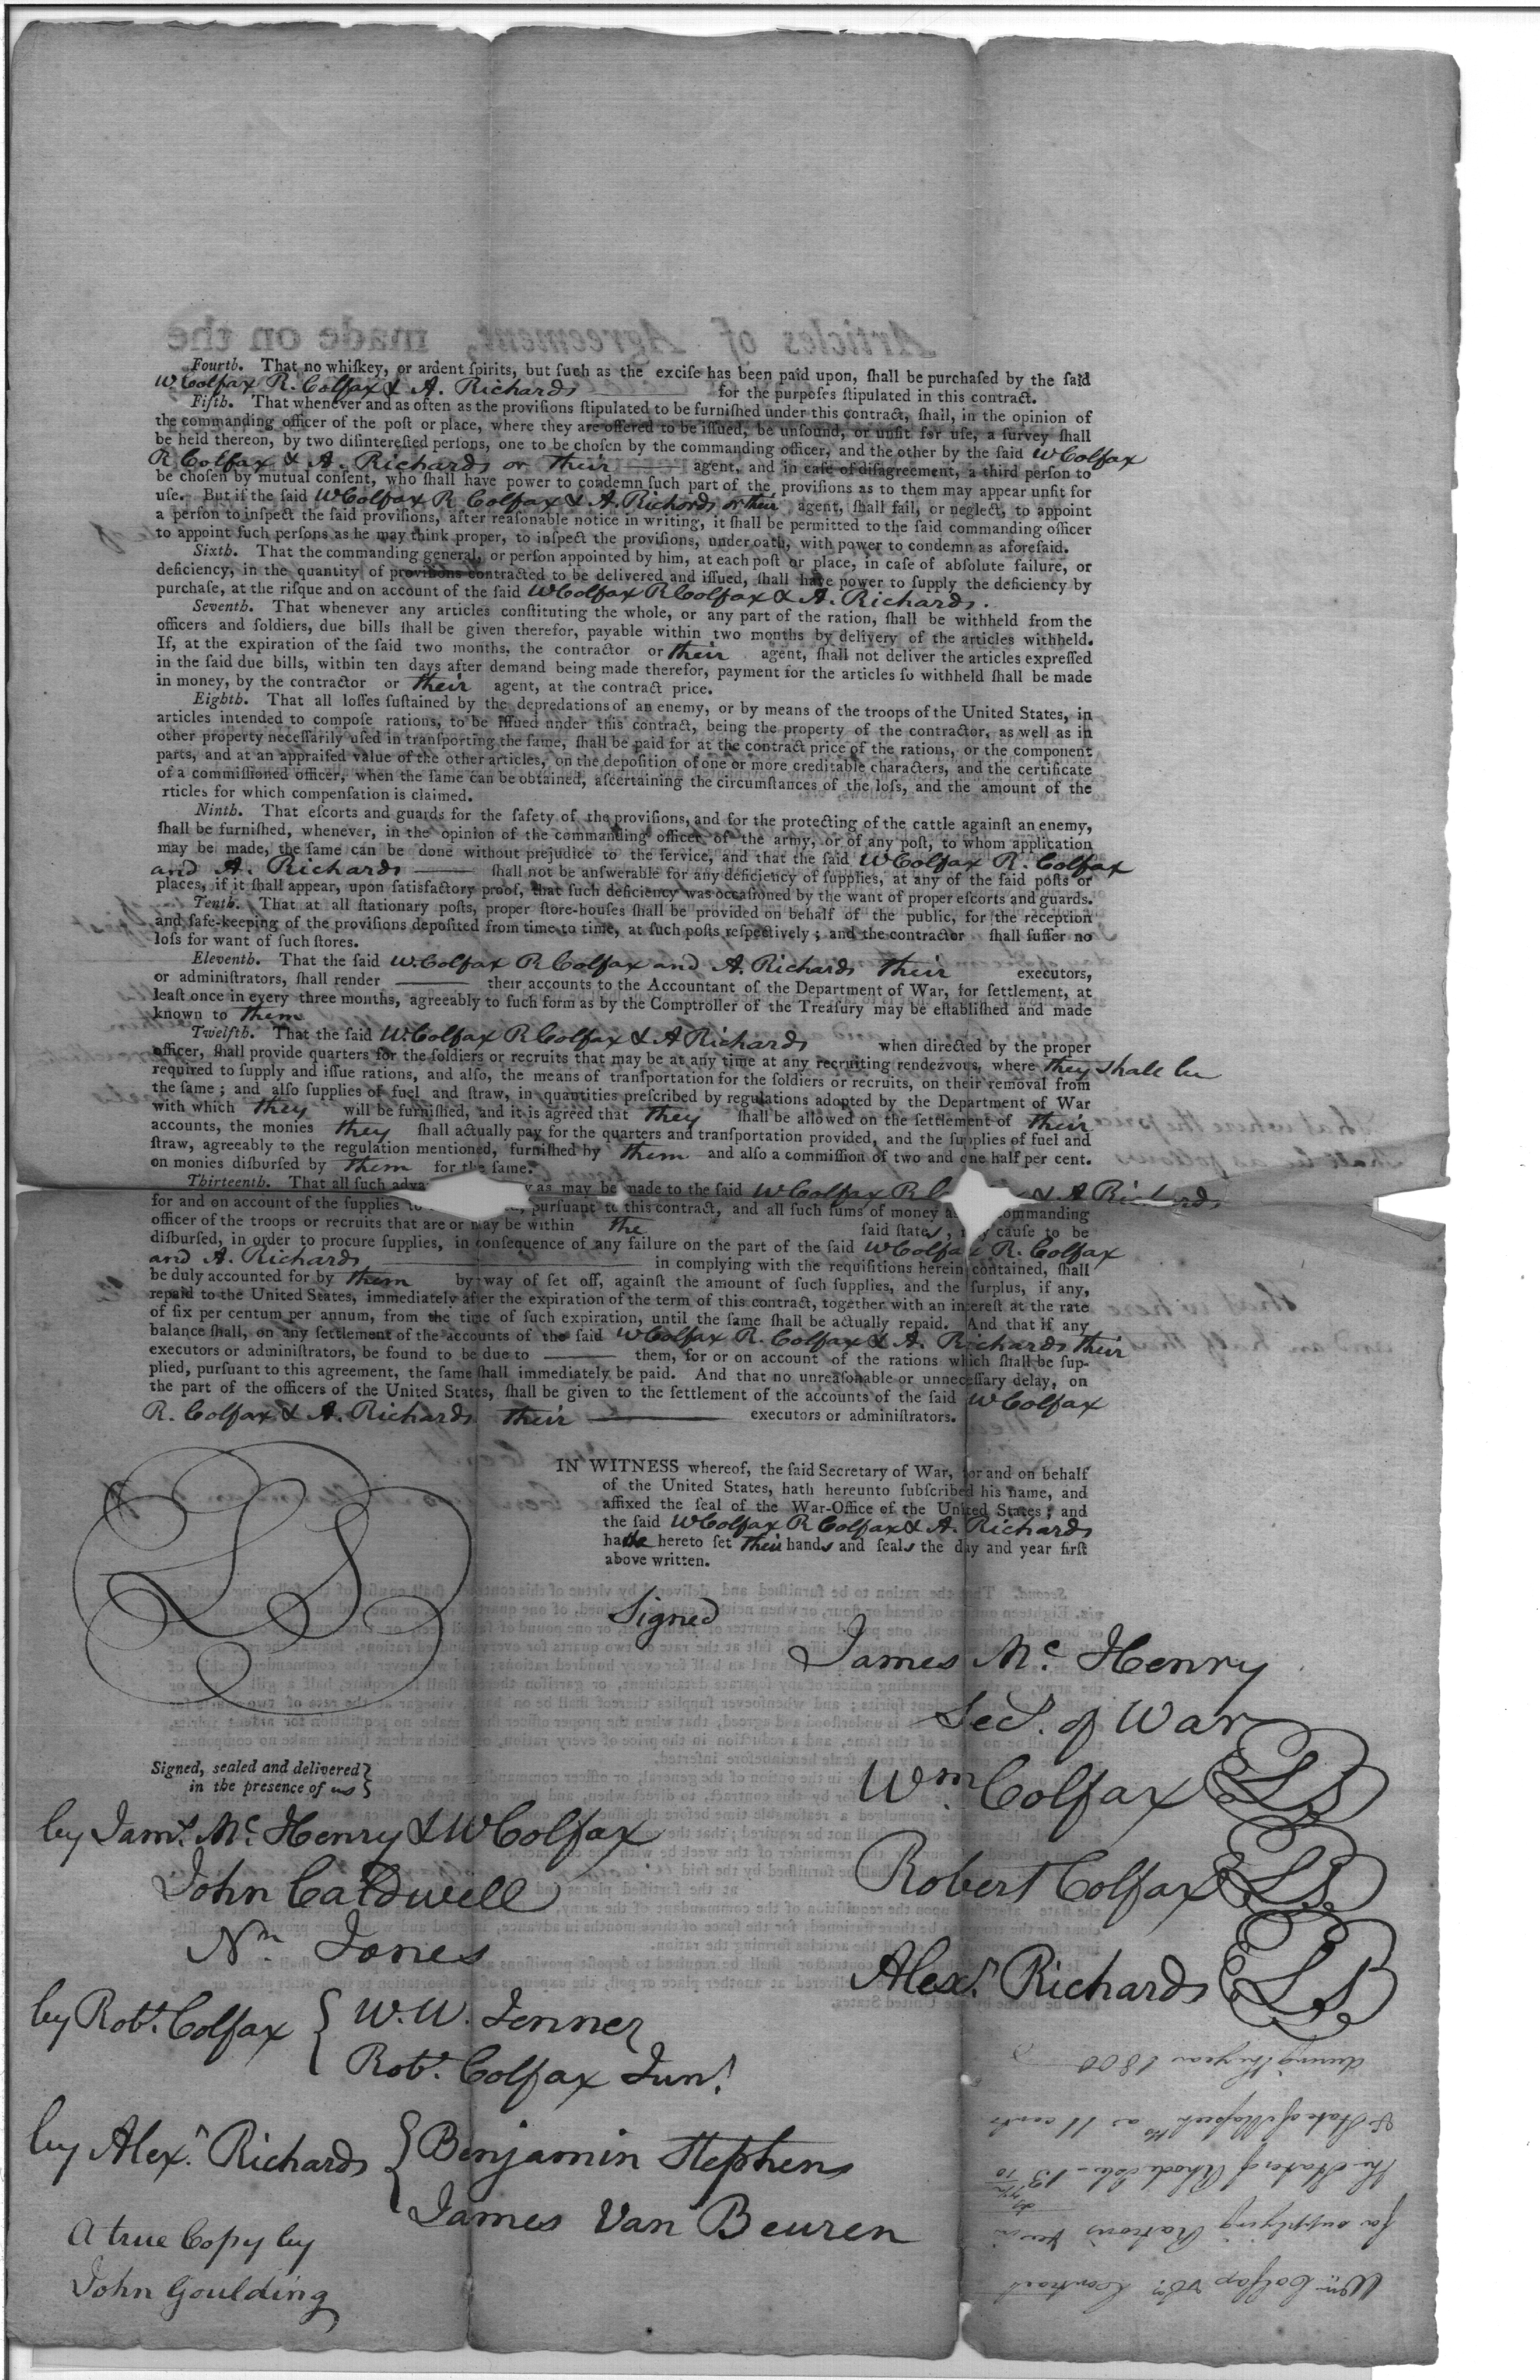 Articles of Agreement, made on the
Fourth. That no whiſkey, or ardent ſpirits, but ſuch as the exciſe has been paid upon, ſhall be purchaſed by the ſaid
W. Colfax R. Colfax & A. Richards for the purpoſes ſtipulated in this contract.
Fifth. That whenever and as often as the proviſions ſtipulated to be furniſhed under this contract, ſhall, in the opinion of
the commanding officer of the poſt or place, where they are offered to be iſſued, be unſound, or unfit for uſe, a ſurvey ſhall
be held thereon, by two diſintereſted perſons, one to be choſen by the commanding officer, and the other by the ſaid W Colfax
R Colfax & A. Richards or their agent, and in caſe of diſagreement, a third perſon to
be choſen by mutual conſent, who ſhall have power to condemn ſuch part of the proviſions as to them may appear unfit for
uſe. But if the ſaid W Colfax R Colfax & A. Richards or their agent, ſhall fail, or neglect, to appoint
a perſon to inſpect the ſaid proviſions, after reaſonable notice in writing, it ſhall be permitted to the ſaid commanding officer
to appoint ſuch perſons as he may think proper, to inſpect the proviſions, under oath, with power to condemn as aforeſaid.
Sixth. That the commanding general, or perſon appointed by him, at each poſt or place, in caſe of abſolute failure, or
deficiency, in the quantity of proviſions contracted to be delivered and iſſued, ſhall have power to ſupply the deficiency by
purchaſe, at the riſque and on account of the ſaid W Colfax R Colfax & A. Richards.
Seventh. That whenever any articles conſtituting the whole, or any part of the ration, ſhall be withheld from the
officers and ſoldiers, due bills ſhall be given therefor, payable within two months by delivery of the articles withheld.
If, at the expiration of the ſaid two months, the contractor or their agent, ſhall not deliver the articles expreſſed
in the ſaid due bills, within ten days after demand being made therefor, payment for the articles ſo withheld ſhall be made
in money, by the contractor or their agent, at the contract price.
Eighth. That all loſſes ſuſtained by the depredations of an enemy, or by means of the troops of the United States, in
articles intended to compoſe rations, to be iſſued under this contract, being the property of the contractor, as well as in
other property neceſſarily uſed in tranſporting the ſame, ſhall be paid for at the contract price of the rations, or the component
parts, and at an appraiſed value of the other articles, on the depoſition of one or more creditable characters, and the certificate
of a commiſſioned officer, when the ſame can be obtained, aſcertaining the circumſtances of the loſs, and the amount of the
rticles for which compenſation is claimed.
Ninth. That eſcorts and guards for the ſafety of the proviſions, and for the protecting of the cattle againſt an enemy,
ſhall be furniſhed, whenever, in the opinion of the commanding officer of the army, or of any poſt, to whom application
may be made, the ſame can be done without prejudice to the ſervice, and that the ſaid W Colfax R. Colfax
and A. Richards ſhall not be anſwerable for any deficiency of ſupplies, at any of the ſaid poſts or
places, if it ſhall appear, upon ſatisfactory proof, that ſuch deficiency was occaſioned by the want of proper eſcorts and guards.
Tenth. That at all ſtationary poſts, proper ſtore-houſes ſhall be provided on behalf of the public, for the reception
and ſafe-keeping of the proviſions depoſited from time to time, at ſuch poſts reſpectively; and the contractor ſhall ſuffer no
loſs for want of ſuch ſtores.
Eleventh. That the ſaid W. Colfax R Colfax and A. Richards their executors,
or administrators, ſhall render their accounts to the Accountant of the Department of War, for ſettlement, at
leaſt once in every three months, agreeably to ſuch form as by the Comptroller of the Treaſury may be eſtabliſhed and made
known to them
Twelfth. That the ſaid W. Colfax R Colfax & A Richards when directed by the proper
officer, ſhall provide quarters for the ſoldiers or recruits that may be at any time at any recruiting rendezvous, where they shall be
required to ſupply and iſſue rations, and alſo, the means of tranſportation for the ſoldiers or recruits, on their removal from
the ſame; and alſo ſupplies of fuel and ſtraw, in quantities preſcribed by regulations adopted by the Department of War
with which they will be furniſhed, and it is agreed that they ſhall be allowed on the ſettlement of their
accounts, the monies they ſhall actually pay for the quarters and tranſportation provided, and the ſupplies of fuel and
ſtraw, agreeably to the regulation mentioned, furniſhed by them and alſo a commiſſion of two and one half per cent.
on monies diſburſed by them for the ſame.
Thirteenth. That all ſuch adva y as may be made to the ſaid W Colfax R C & A Richards
for and on account of the ſupplies to , purſuant to this contract, and all ſuch ſums of money a ommanding
officer of the troops or recruits that are or may be within the ſaid states, may cauſe to be
diſburſed, in order to procure ſupplies, in conſequence of any failure on the part of the ſaid W Colfax R. Colfax
and A. Richards in complying with the requiſitions herein contained, ſhall
be duly accounted for by them by way of ſet off, againſt the amount of ſuch ſupplies, and the ſurplus, if any,
repaid to the United States, immediately after the expiration of the term of this contract, together with an intereſt at the rate
of ſix per centum per annum, from the time of ſuch expiration, until the ſame ſhall be actually repaid. And that if any
balance ſhall, on any ſettlement of the accounts of the ſaid W Colfax R. Colfax & A. Richards their
executors or adminiſtrators, be found to be due to them, for or on account of the rations which ſhall be ſup-
plied, purſuant to this agreement, the ſame ſhall immediately be paid. And that no unreaſonable or unneceſſary delay, on
the part of the officers of the United States, ſhall be given to the ſettlement of the accounts of the ſaid W Colfax
R. Colfax & A. Richards their executors or adminiſtrators.
IN WITNESS whereof, the ſaid Secretary of War, for and on behalf
of the United States, hath hereunto ſubſcribed his name, and
affixed the ſeal of the War-Office of the United States; and
the ſaid W Colfax R Colfax & A. Richards
have hereto ſet their hands and ſeals the day and year firſt
above written.
LS
Signed
James Mc. Henry
Sec. of War
Signed, sealed and delivered
in the presence of us
Wm Colfax LS
by Jams. Mc. Henry & W Colfax
John Caldwell
Robert Colfax LS
Nn Jones
Alexr. Richards LS
by Robt. Colfax W. W. Jenner
Robt. Colfax Junr.
by Alexr. Richards Benjamin Stephens
James Van Beuren
A true Copy by
John Goulding
Wm Colfax &Co. Contract
for supplying Rations
the State of Rhode Isld.
& State of at 11 cents
during the year 1800